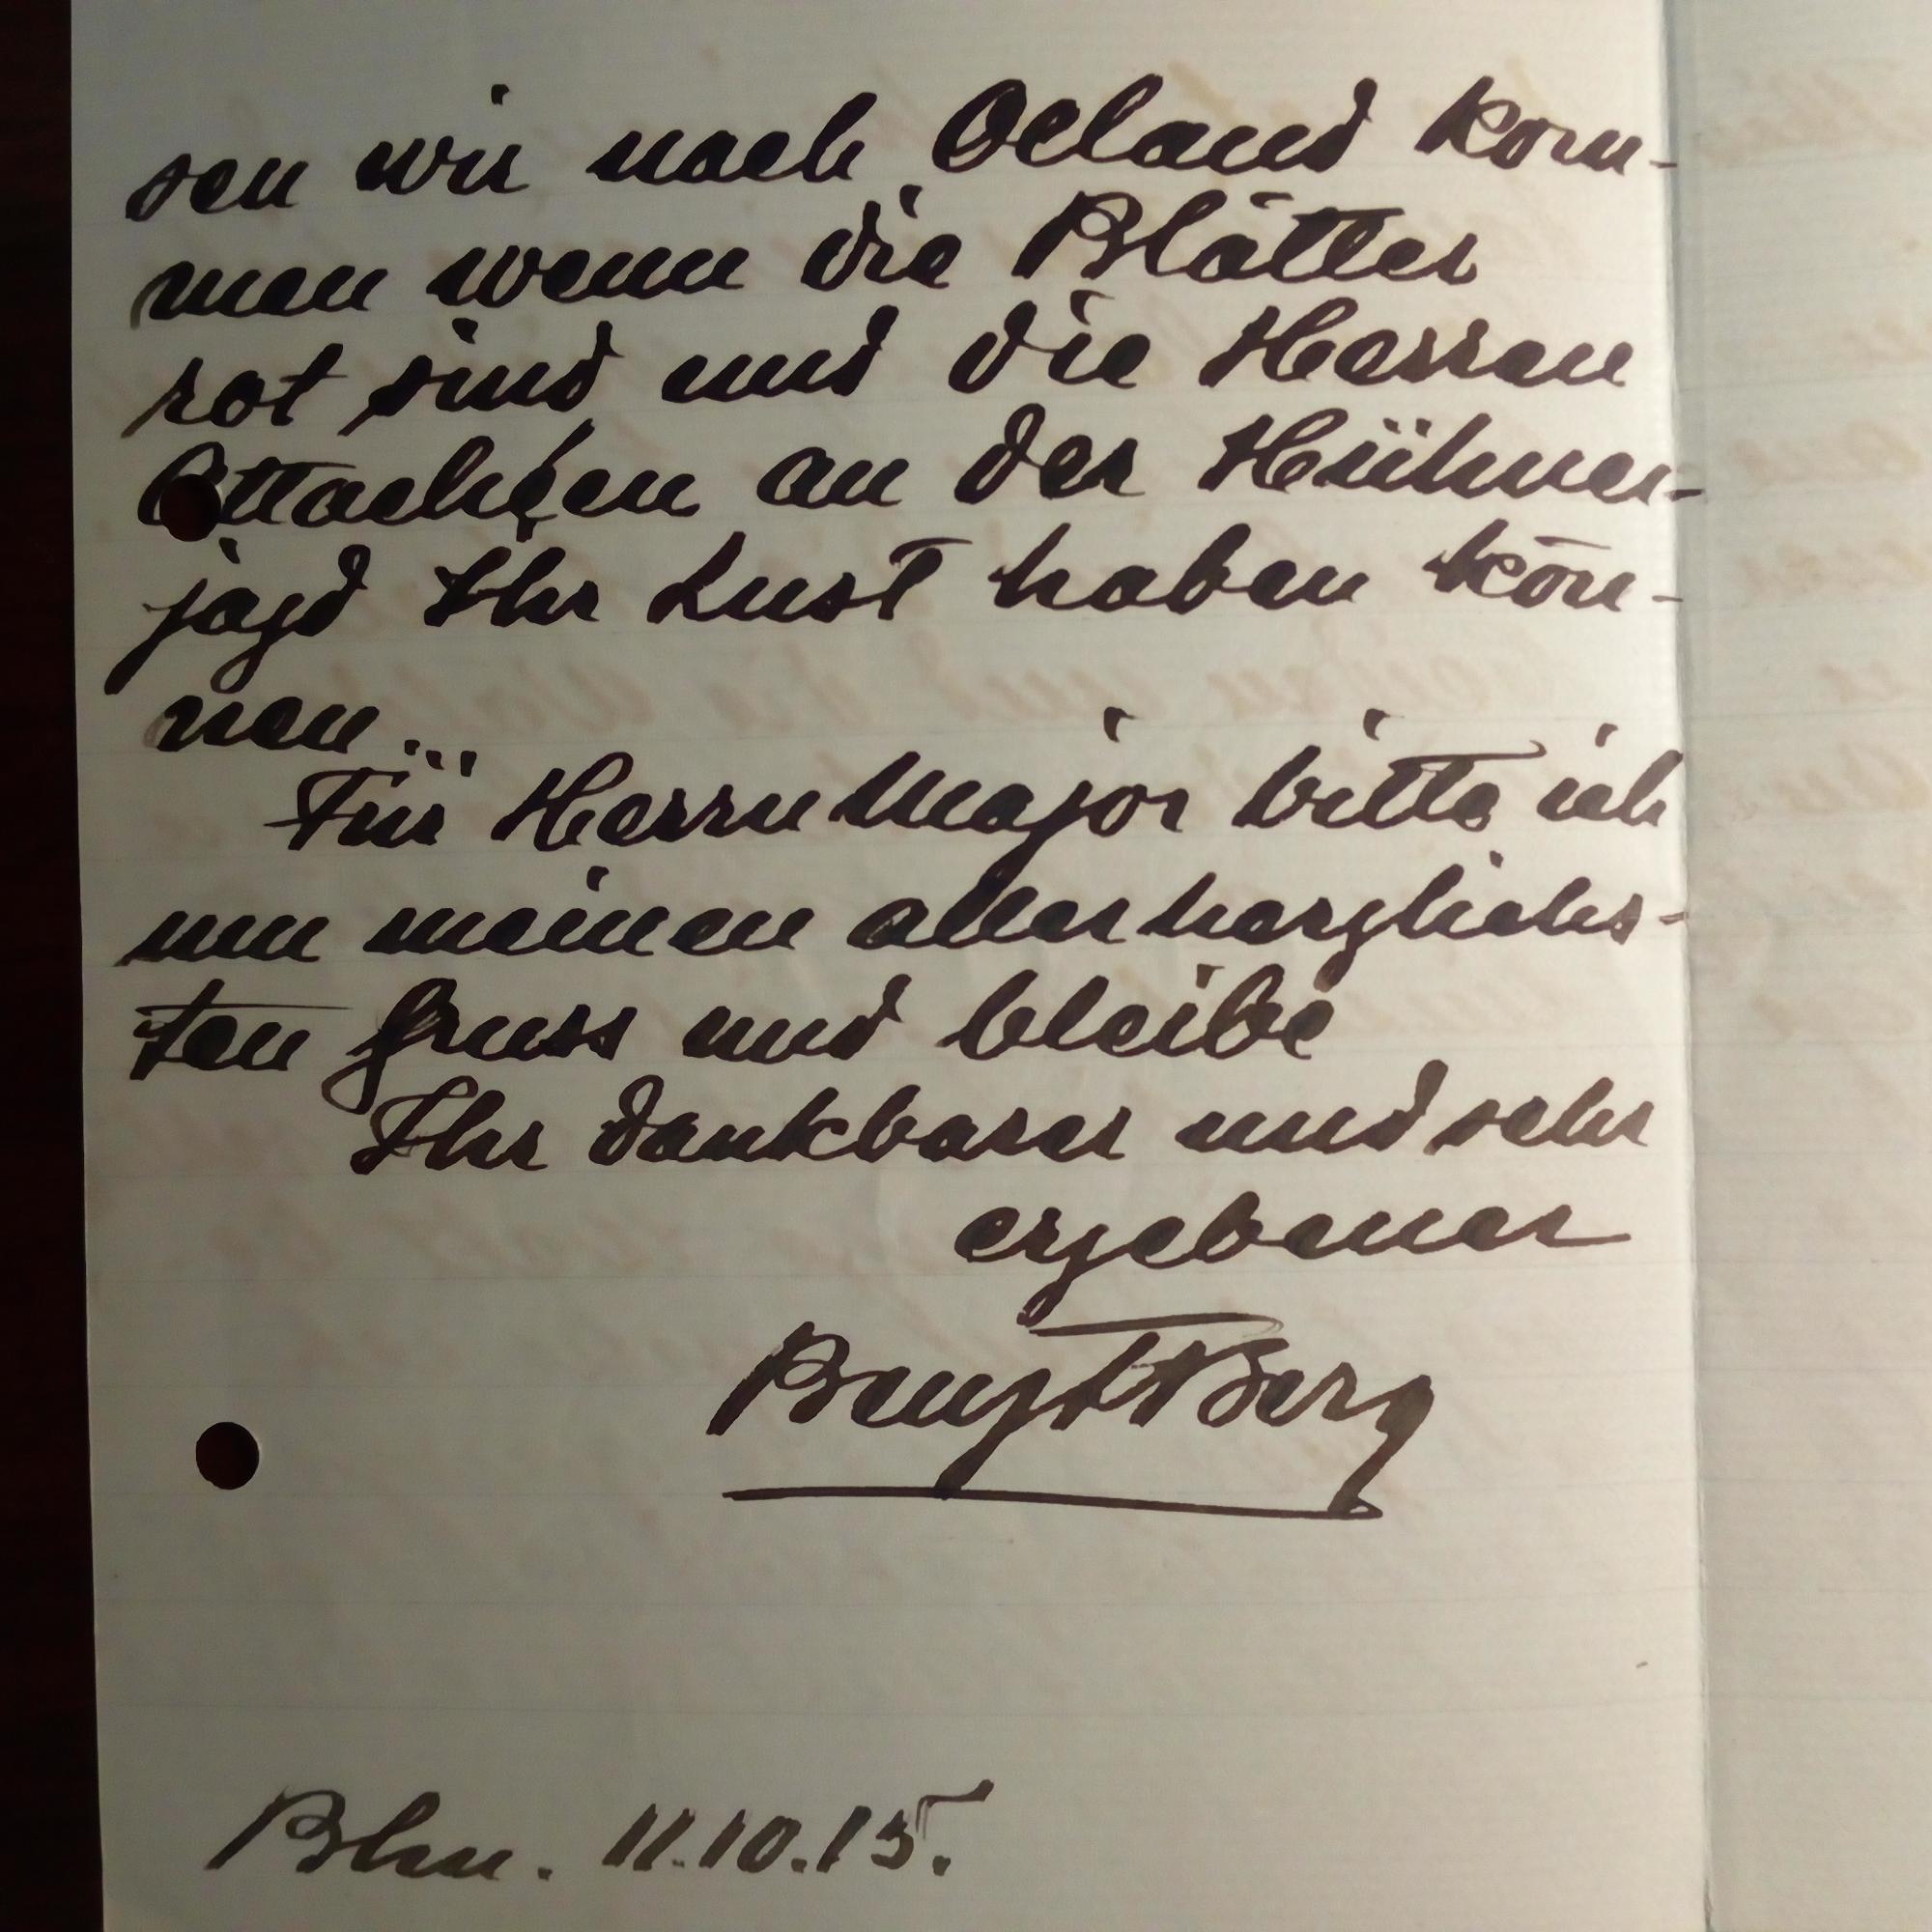 sen wir nach Oeland kom-
men wenn die Blätter
rot sind und die Herren
Attachéen an der Hühner-
jagd Ihr Lust haben kön-
nen...
Für Herrn Major bitte ich
um meinen allerherzlichs-
ten Gruss und bleibe
Ihr dankbarer und sehr
ergebener
Bengt Berg
Bln. 11.10.15.